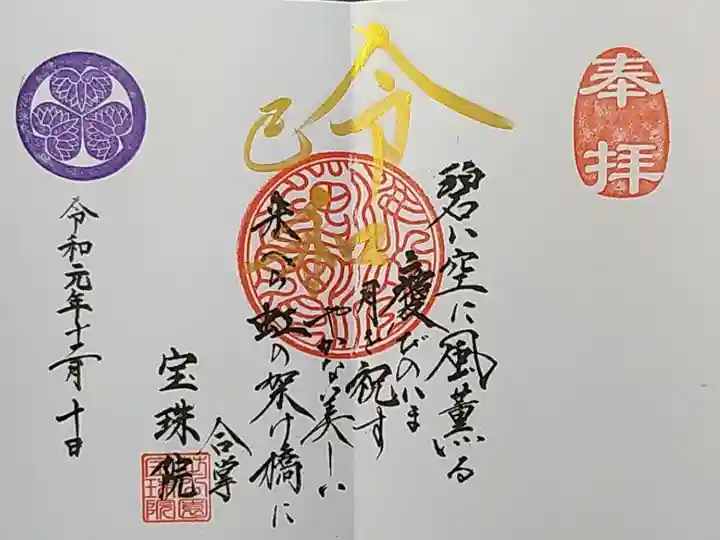 奉拝
令和
己亥
碧い空に風薫る
慶びのいま
月を祝す
やかない美しい
来へら虹の架け橋に
合掌
宝珠院
令和元年十二月十日